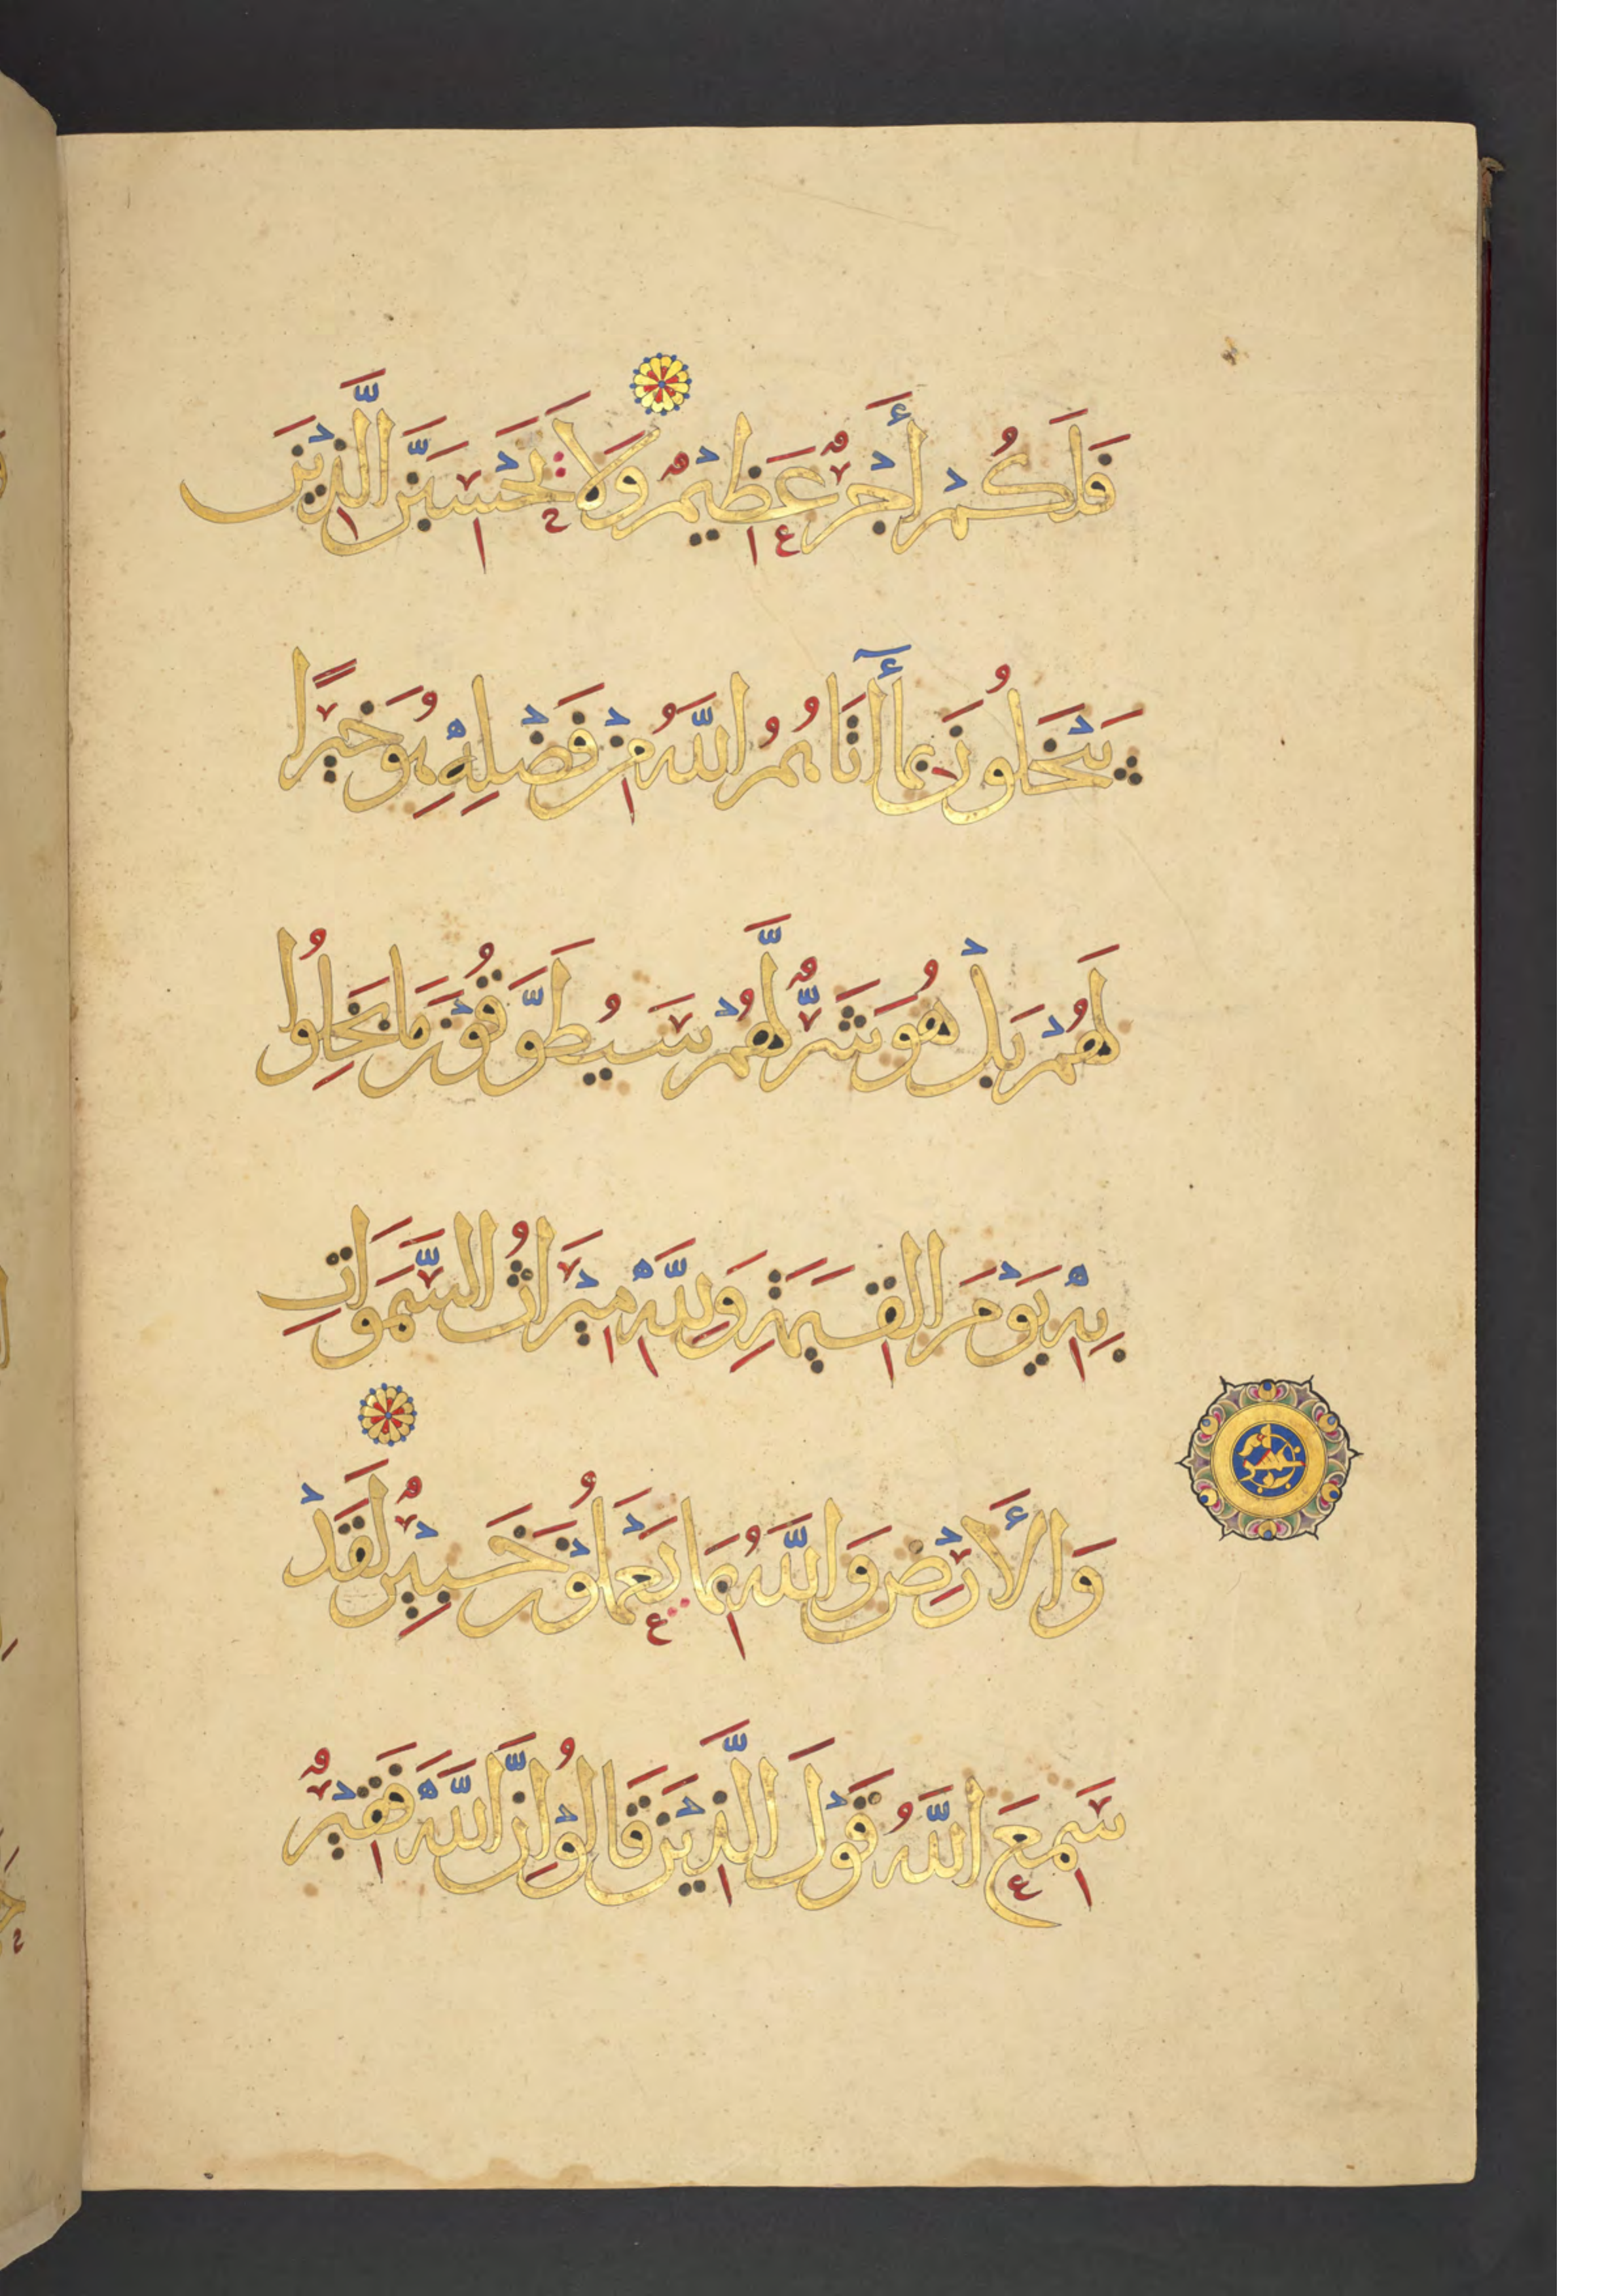 فَلَكُمْ أَجْرٌ عَظِيْمٌ وَلَا يَحْسَبَنَّ الَّذِيْنَ
يَبْخَلُونَ بِمَا أٓتَاهُمُ اللَّهُ مِنْ فَضْلِهِ هُوَ خَيْرًا
لَهُمْ بَلْ هُوَ شَرٌّ لَّهُمْ سَيُطَوَّقُوْنَ مَا بَخِلُوا
بِهِ يَوْمَ الْقِيَمَةِ وَلِلَّهِ مِيْرَاثُ السَّمَوَاتِ
وَالْأَرْضِ وَاللَّهُ بِمَا يَعْمَلُوْنَ خَبِيْرٌ لَقَدْ
سَمِعَ اللَّهُ قَوْلَ الَّذِيْنَ قَالُوْا إِنَّ اللَّهَ فَقِيْرٌ